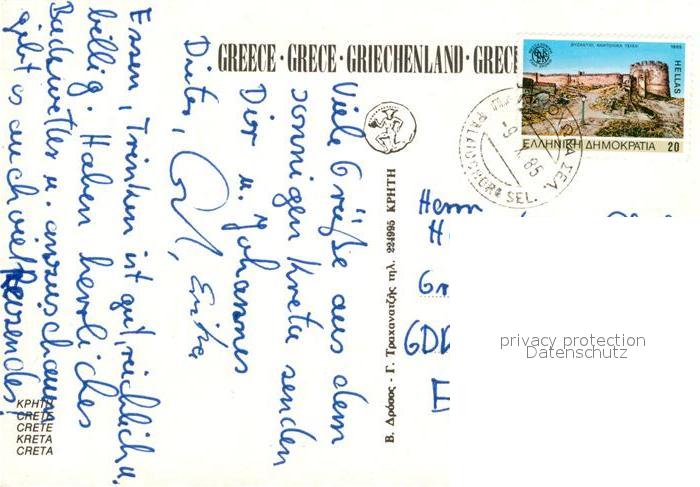 GREECE · GRECE · GRIECHENLAND · GRECE
ΒΥΖΑΝΤΙΟ, ΑΝΑΤΟΛΙΚΑ ΤΕΙΧΗ 1985
HELLAS
ΕΛΛΗΝΙΚΗ ΔΗΜΟΚΡΑΤΙΑ 20
-9. X. 85
SEL.
Viele Grüße aus dem
sonnigen Kreta senden
Dir u. Johannes
Dieter, Erika
Essen, Trinken ist gut, reichlich u.
billig. Haben herrliches
Badewetter u. anzuschauen
gibt es auch viel Reizendes!
Β. Δρόσος - Γ. Τραχανατζής τηλ. 224995 ΚΡΗΤΗ
Herrn
H
GDR
privacy protection
Datenschutz
ΚΡΗΤΗ
CRETE
CRETE
KRETA
CRETA